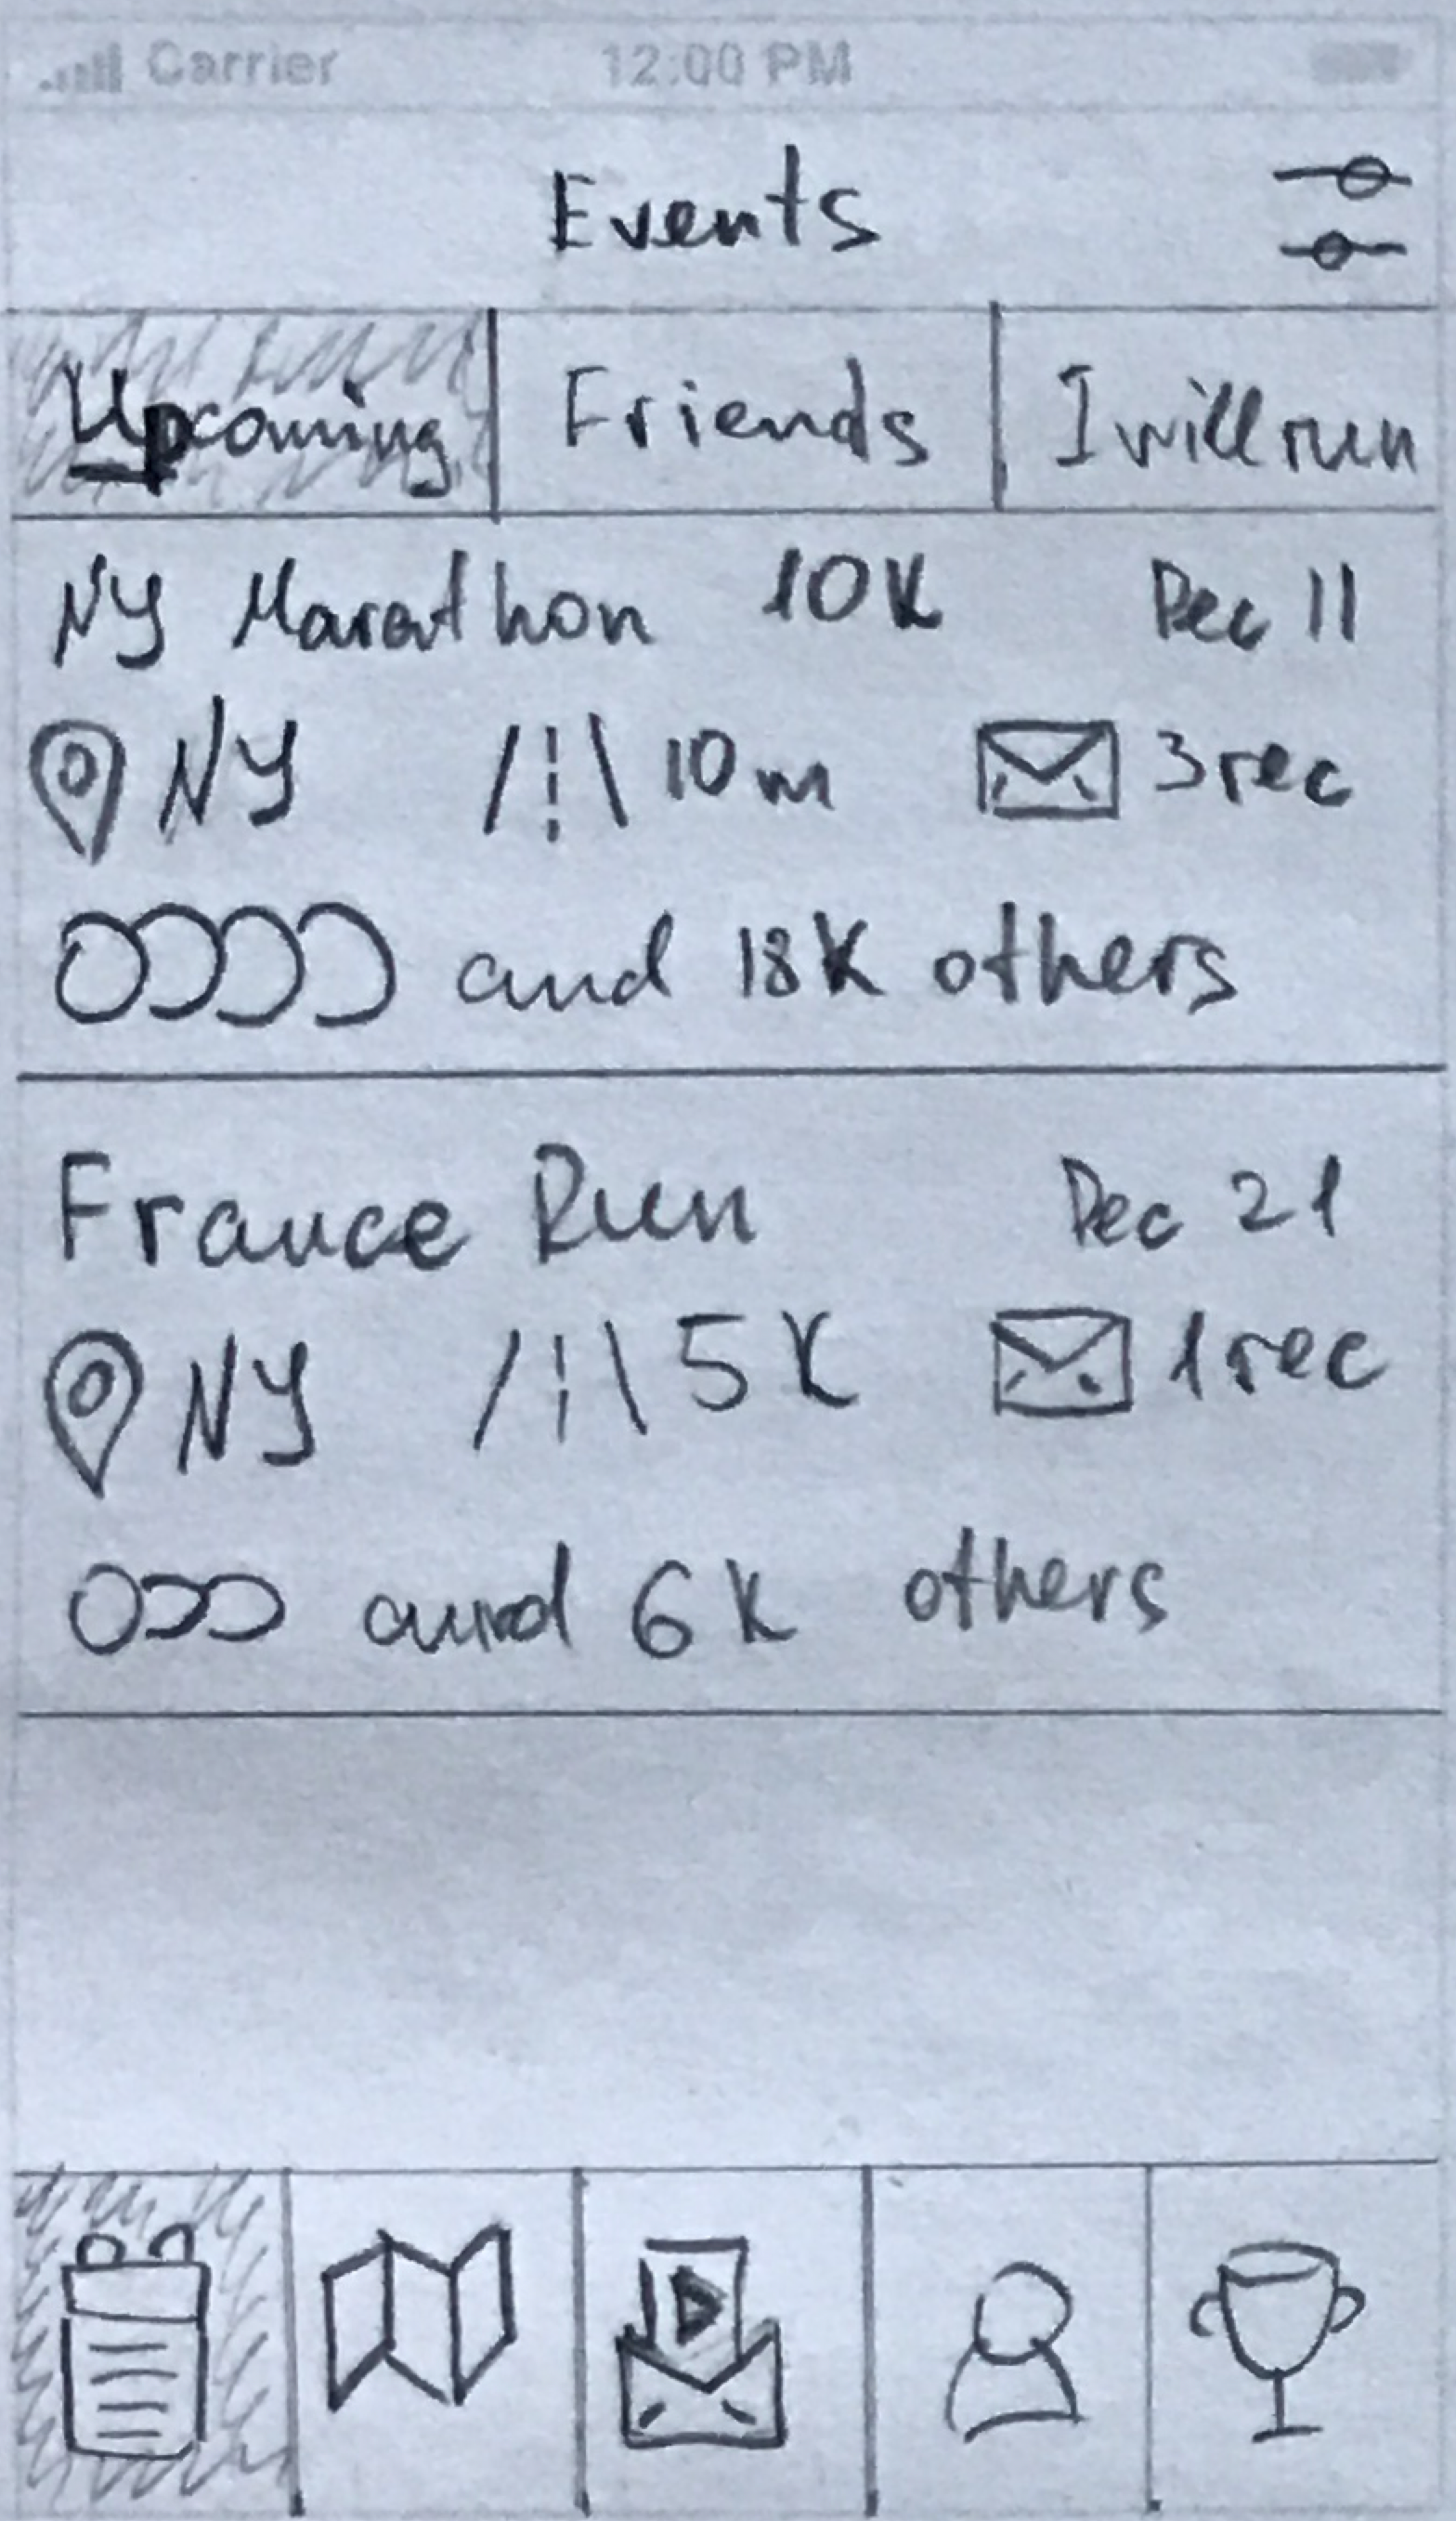 Carrier 12:00 PM
Events
Upcoming Friends I will run
NY Marathon 10K Dec 11
NY 10m 3 rec
and 18K others
France Run Dec 21
NY 5K 1 rec
and 6K others